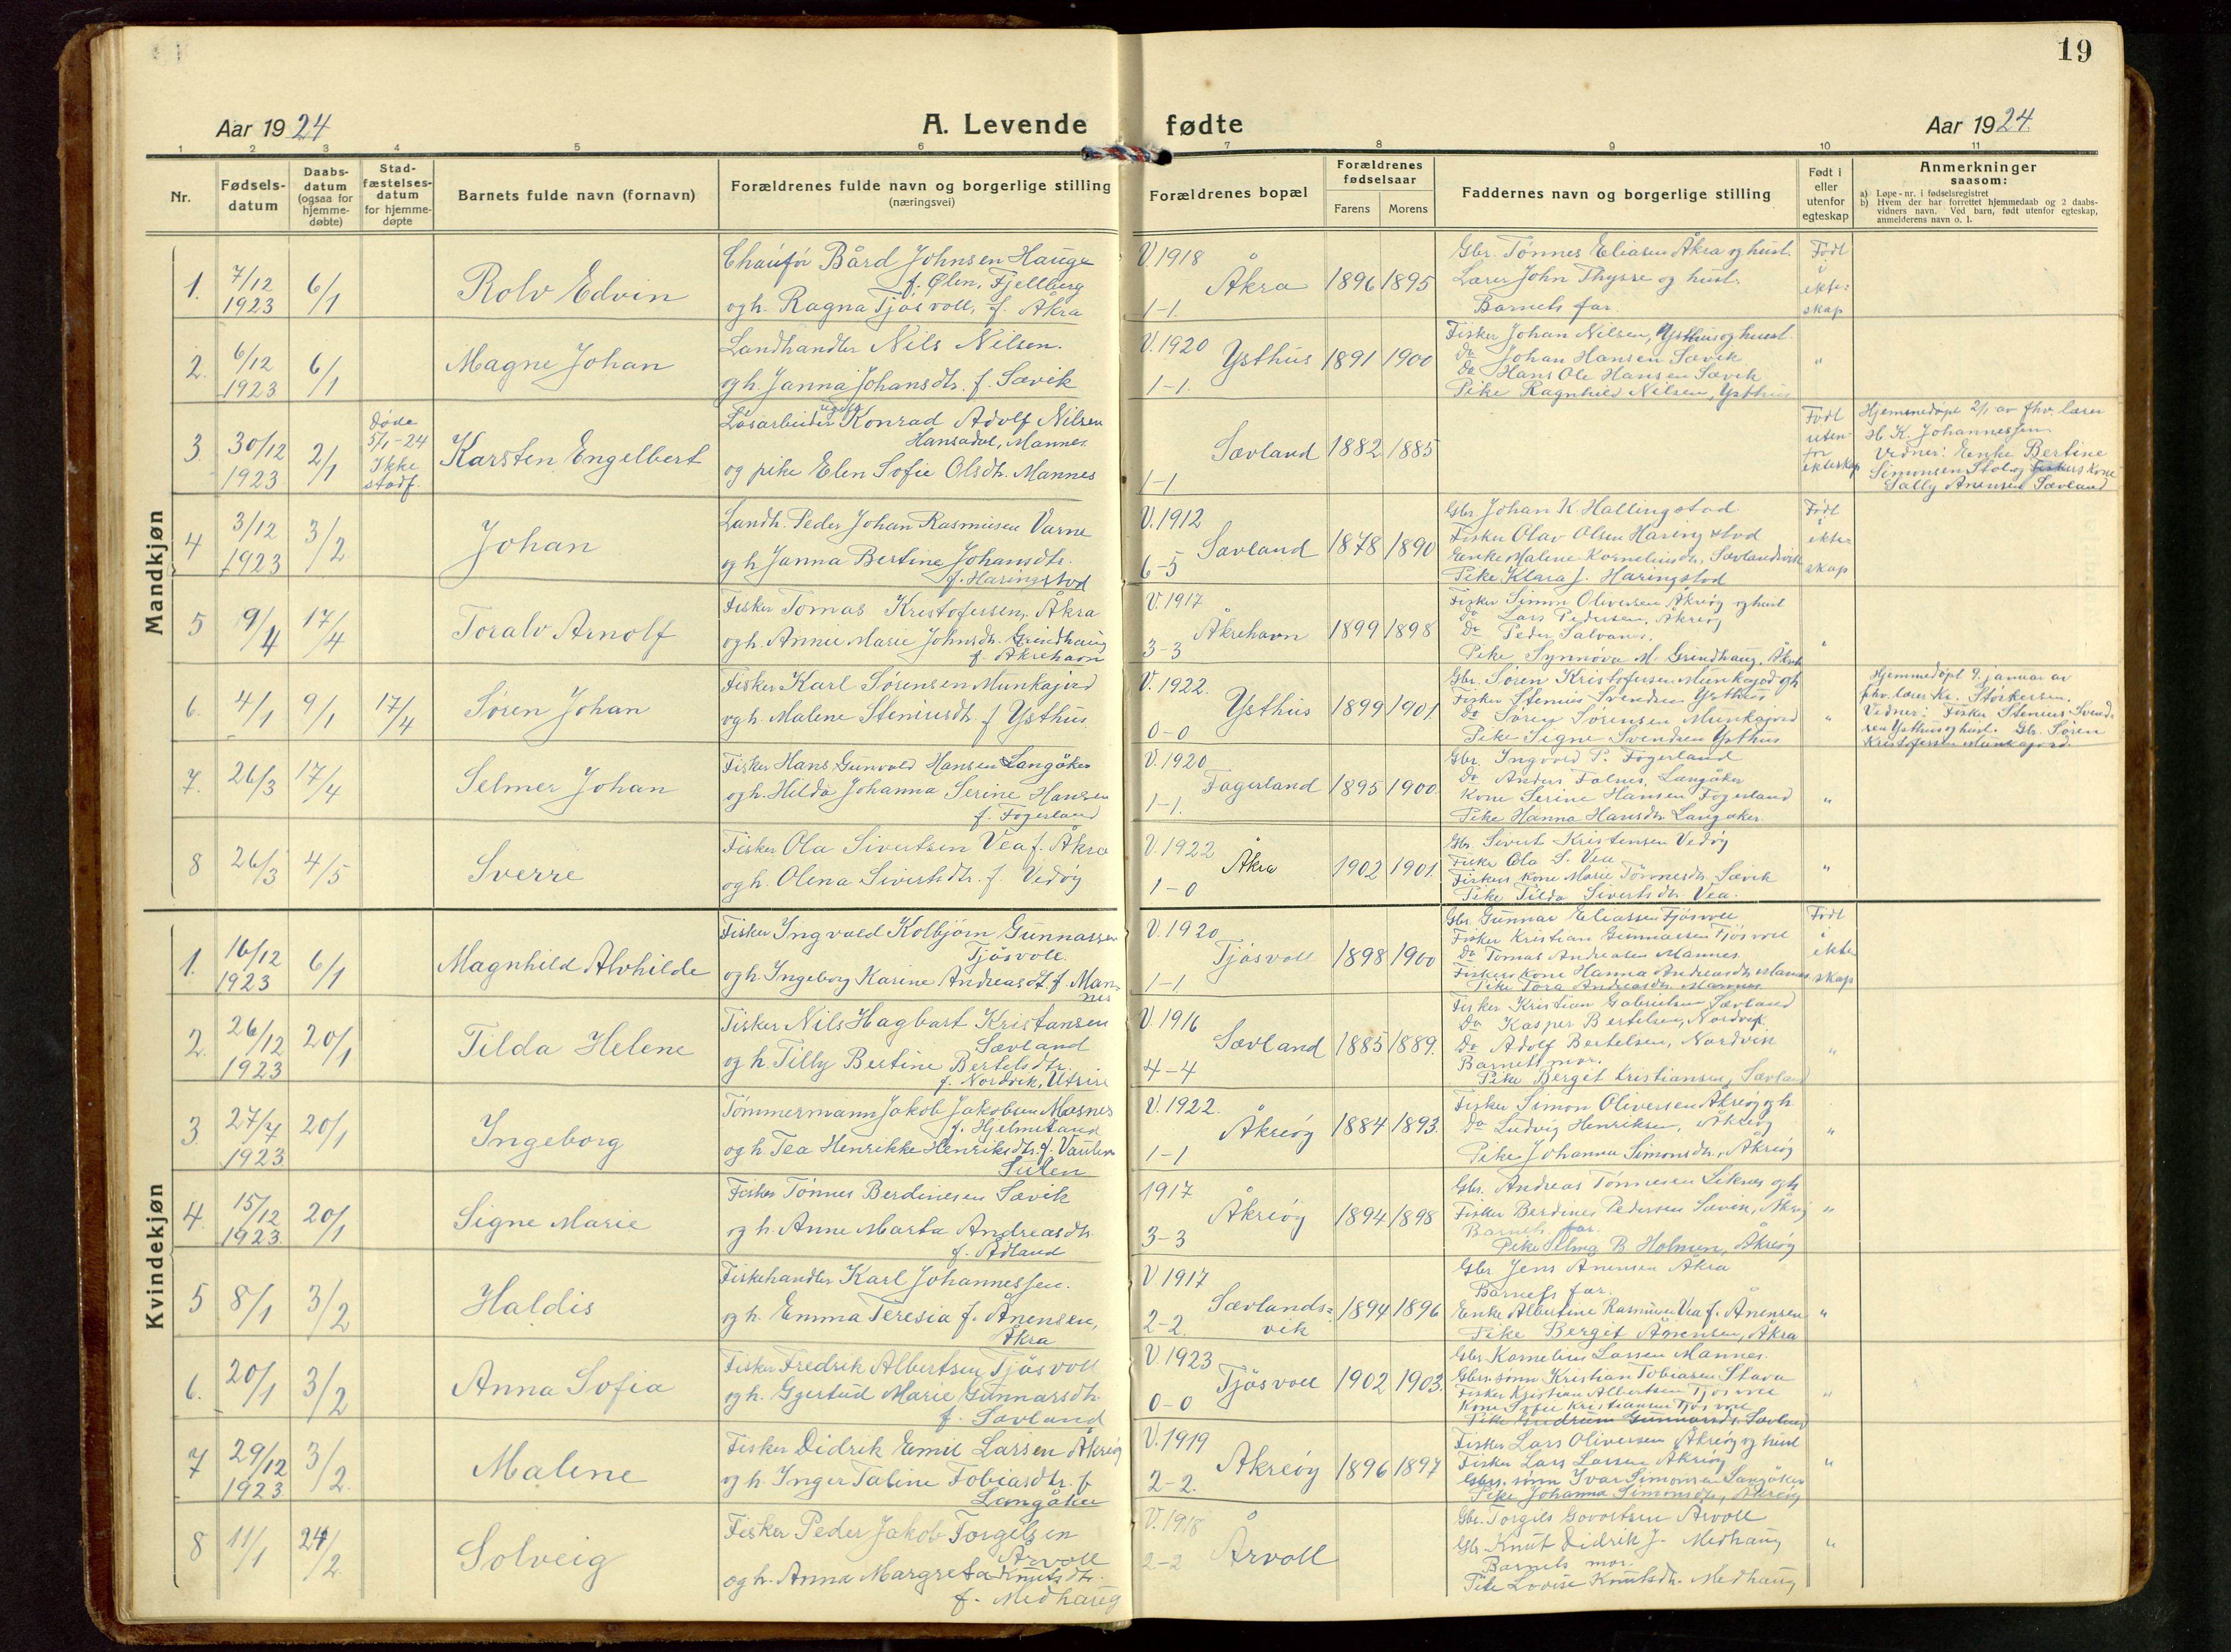 19
Aar 1924
A. Levende fødte
Aar 1924.
1 2 3 4 5 6 7 8 9 10 11
Nr.
Fødsels-
datum
Daabs-
datum
(ogsaa for
hjemme-
døbte)
Stad-
fæstelses-
datum
for hjemme-
døpte
Barnets fulde navn (fornavn)
Forældrenes fulde navn og borgerlige stilling
(næringsvei)
Forældrenes bopæl
Forældrenes
fødselsaar
Farens Morens
Faddernes navn og borgerlige stilling
Født i
eller
utenfor
egteskap
Anmerkninger
saasom:
a) Løpe-nr. i fødselsregistret
b) Hvem der har forrettet hjemmedaab og 2 daabs-
vidners navn. Ved barn, født utenfor egteskap,
anmelderens navn o. l.
Mandkjøn
1. 7/12 1923 6/1 Rolv Edvin
Chauför Bård Johnsen Hauge
f. Ølen, Fjellberg
og h. Ragna Tjösvoll, f. Åkra
V. 1918
Åkra 1896 1895
1-1.
Gbr. Tönnes Eliasen Åkra og hust.
Lærer John Thysse og hust.
Barnets far.
Født
i
ekte-
skap
2. 6/12 1923 6/1 Magne Johan
Landhandler Nils Nilsen.
og h. Janna Johansdtr. f. Sævik
V. 1920
Ysthus 1891 1900
1-1.
Fisker Johan Nilsen, Ysthus og hust.
Do Johan Hansen Sævik
Do Hans Ole Hansen Sævik
Pike Ragnhild Nilsen, Ysthus
"
3. 30/12 1923 2/1
Døde
5/1-24
Ikke
stadf.
Karsten Engelbert
Løsarbeider ugift Konrad Adolf Nilsen
Hansadal, Mannes
og pike Elen Sofie Olsdtr. Mannes
Sævland 1882 1885
1-1
Født
uten-
for
ekteskap
Hjemmedøpt 2/1 av fhv. lærer
H. K. Johannessen.
Vidner: Enke Bertine
Simonsen Stol og fiskers kone
Sally Anensen Sævland
4 3/12 1923 3/2 Johan
Landh. Peder Johan Rasmusen Varne
og h Janna Bertine Johansdtr.
f. Haringstad
V. 1912
Sævland 1878 1890
6-5
Gbr Johan K. Hallingstad
Fisker Olav Olsen Haringstad
Enke Malene Korneliusdtr, Sævlandsvik
Pike Klara J. Haringstad
Født
i
ekte-
skap
5 9/4 17/4 Toralv Arnolf
Fisker Tomas Kristofersen, Åkra
og h. Annie Marie Johnsdtr. Grindhaug
f. Åkrehavn
V. 1917
Åkrehavn 1899 1898
3-3
Fisker Simon Oliversen Åkreøy og hust
do Lars Pedersen, Åkreøy
Do Peder Salvanes.
Pike Synnøva M. Grindhaug, Åkreh
"
6. 4/1 9/1 17/4 Søren Johan
Fisker Karl Sørensen Munkajord
og h. Malene Steniusdtr. f Ysthus.
V. 1922.
Ysthus 1899 1901.
0-0
Gbr. Søren Kristofersen Munkajod og h
Fisker Stenius Svendsen Ysthus
do Søren Sørensen Munkajord
Pike Signe Svendsen Ysthus
"
Hjemmedøpt 9. januar av
fhv. lærer Kr. Størkersen.
Vidner: Fisker Stenius Svend-
sen Ysthus og hust. Gbr. Søren
Kristofersen Munkajord.
7. 26/3 17/4 Selmer Johan
Fisker Hans Gunvald Hansen Langåker
og h. Hilda Johanna Serine Hansen
f. Fagerland
V. 1920
Fagerland 1895 1900.
1-1.
Gbr. Ingvald P. Fagerland
do Anders Falnes, Langåker
Kone Serine Hansen Fagerland
Pike Hanna Hansdtr Langåker
"
8 26/3 4/5 Sverre
Fisker Ola Sivertsen Vea f. Åkra
og h. Olena Sivertsdtr. f Vedöy
V. 1922
Åkra 1902 1901.
1-0
Gbr. Sivert Kristensen Vedöy
Fisker Ola S. Vea
Fiskers kone Marie Tönnesdtr. Sævik
Pike Tilda Sivertsdtr. Vea.
"
Kvindekjøn
1. 16/12 1923 6/1 Magnhild Alvhilde
Fisker Ingvald Kolbjörn Gunnarsen
Tjösvoll.
og h. Ingeborg Karine Andreasdt. f. Man-
nes
V. 1920
Tjösvoll 1898 1900
1-1.
Gbr. Gunnar Eliassen Tjösvoll
Fisker Kristian Gunnarsen Tjösvoll
Do Tomas Andreasen Mannes
Fiskers kone Hanna Andreasdtr Mannes
Pike Tora Andreasdtr. Mannes
Født
i
ekte
skap
2. 26/12 1923 20/1 Tilda Helene
Fisker Nils Hagbart Kristansen
Sævland
og h. Tilly Bertine Bertelsdtr.
f. Nordvik, Utsire
V. 1916
Sævland 1885 1889.
4-4
Fisker Kristian Gabrielsen Sævland
Do Kasper Bertelsen, Nordvik
Do Adolf Bertelsen, Nordvik
Barnets mor.
Pike Bergit Kristiansen, Sævland
"
3. 27/7 1923 20/1 Ingeborg
Tömmermann Jakob Jakobsen Masnes
f. Hjelmeland
og h. Tea Henrikke Henriksdtr. f.
Sulen
V. 1922.
Åkreöy 1884 1893.
1-1
Fisker Simon Oliversen Åkreöy og h.
Do Ludvig Henriksen, Åkreöy
Pike Johanna Simonsdtr., Åkreöy
"
4. 15/12 1923. 20/1 Signe Marie
Fisker Tönnes Berdinesen Sævik
og h. Anne Marta Andreasdtr.
f. Ådland
1917
Åkreöy 1894 1898
3-3
Gbr. Andreas Tönnesen Liknes og h
Fisker Berdines Pedersen Sævik, Åkröy
Barnets far.
Pike Selma B. Holmen, Åkreöy
"
5 8/1 3/2 Haldis
Fiskehandler Karl Johannessen.
og h. Emma Teresia f. Ånensen,
Åkra
V 1917
Sævlands-
vik 1894 1896
2-2.
Gbr Jens Anensen Åkra
Barnets far.
Enke Albertine Rasmusen Vea f. Ånensen
Pike Bergit Ånensen, Åkra
"
6. 20/1 3/2 Anna Sofia
Fisker Fredrik Albertsen Tjösvoll
og h. Gjertud Marie Gunnarsdtr.
f. Sævland
V. 1923
Tjösvoll 1902 1903.
0-0
Gbr. Kornelius Larsen Mannes.
Gbrs. sønn Kristian Tobiasen Stava
Fisker Kristian Albertsen Tjösvoll
Kone Sofie Kristiansen Tjösvoll
Pike Gudrun Gunnarsdtr. Sævland
"
7 29/12 1923. 3/2. Malene
Fisker Didrik Emil Larsen Åkreöy
og h. Inger Taline Tobiasdtr. f
Langåker
V. 1919
Åkreöy 1896 1897
2-2.
Fisker Lars Oliversen Åkreöy og hust
Fisker Lars Larsen Åkreöy
Gbrs. sønn Ivar Simonsen Langåker
Pike Johanna Simonsdtr, Åkreöy
"
8 11/1 24/2. Solveig
Fisker Peder Jakob Torgilsen
Årvoll
og h. Anna Margreta Knutsdtr.
f. Medhaug
V. 1918
Årvoll
2-2
Gbr. Torgils Govertsen Årvoll
Gbr. Knut Didrik J. Medhaug
Barnets mor.
Pike Lovise Knutsdtr. Medhaug
"